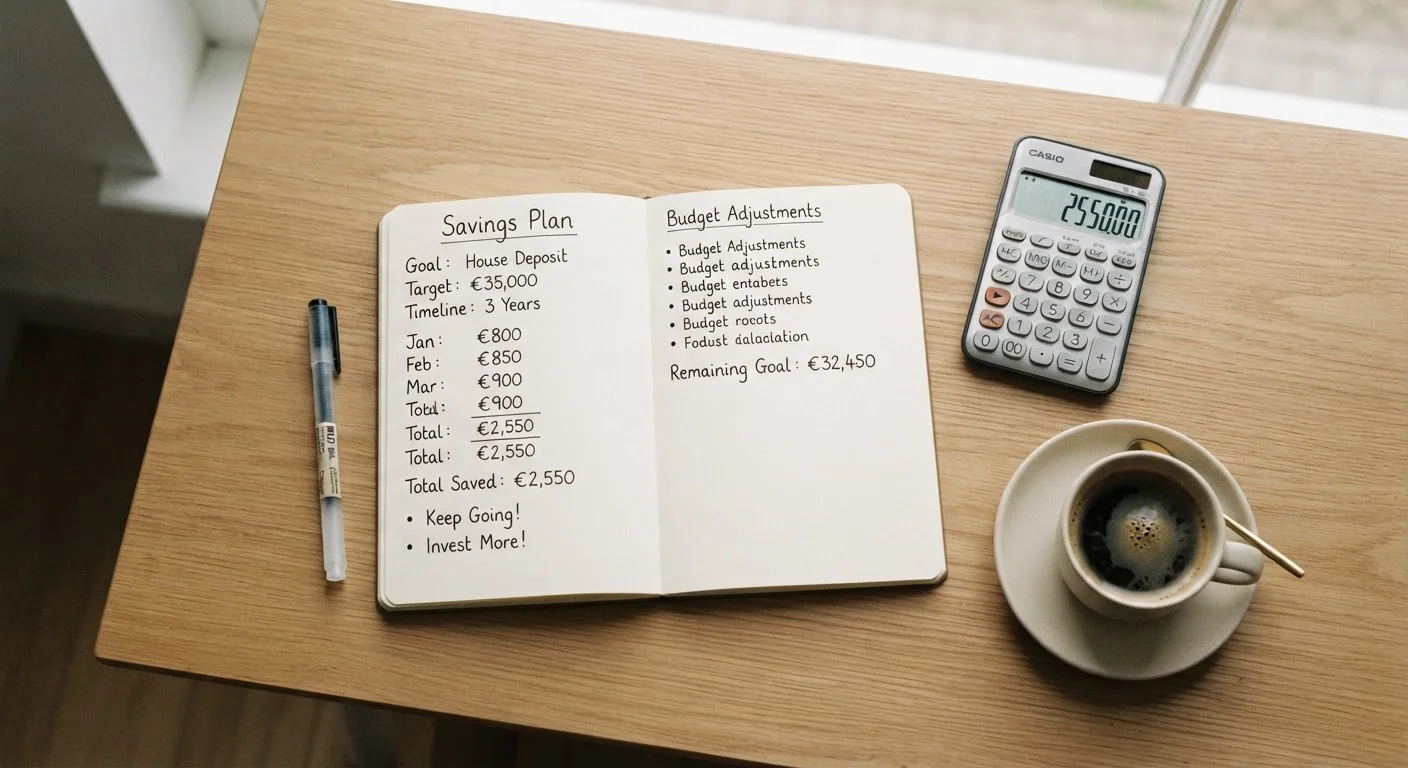 Savings Plan
Goal: House Deposit
Target: €35,000
Timeline: 3 Years
Jan: €800
Feb: €850
Mar: €900
Total: €900
Total: €2,550
Total: €2,550
Total Saved: €2,550
• Keep Going!
• Invest More!
Budget Adjustments
• Budget Adjustments
• Budget adjustments
• Budget entabets
• Budget adjustments
• Budget rocots
• Fodust dalaclation
Remaining Goal: €32,450
CASIO
255000
MC
M+
÷
7 8 9 ×
4 5 6 −
AC 1 2 3 +
0 00 · =